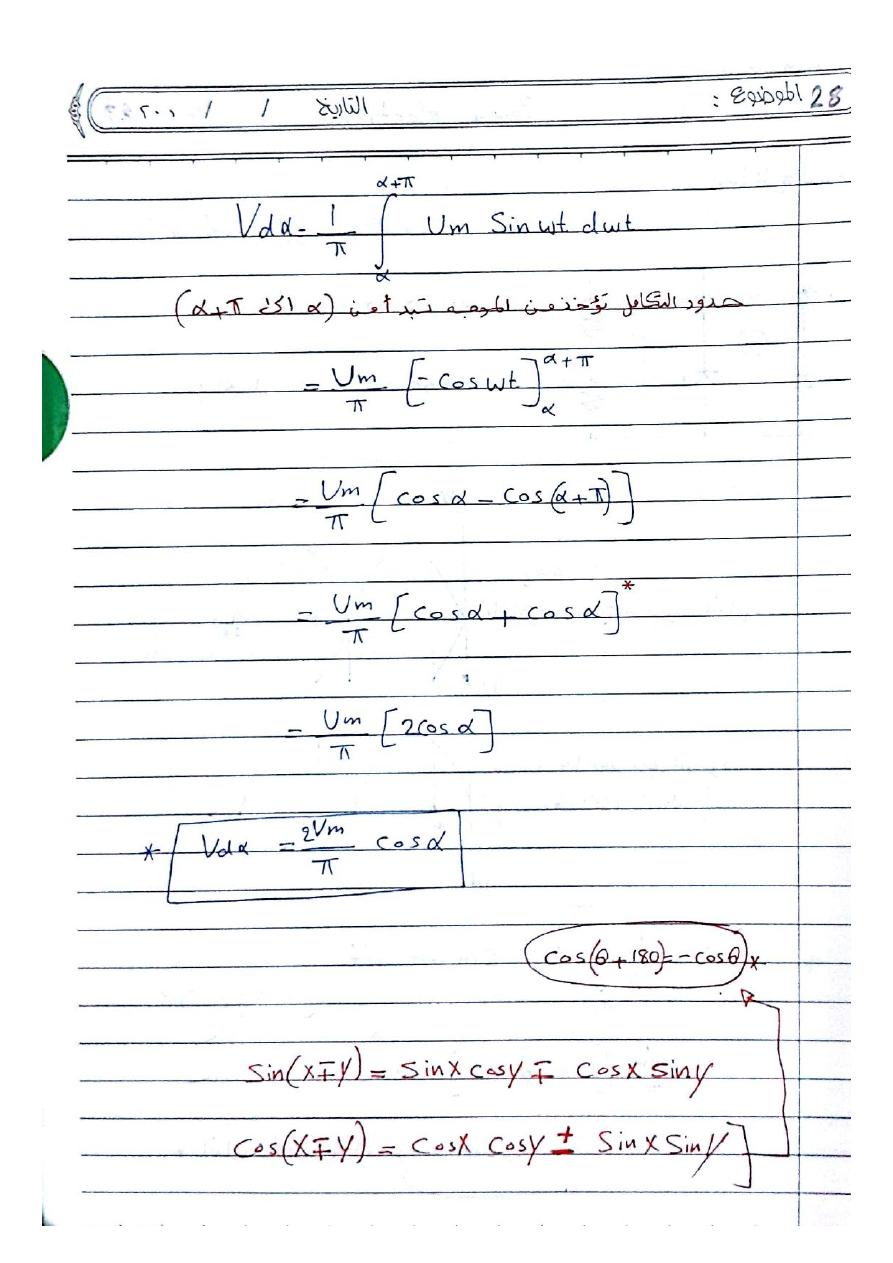 28 الموضوع : التاريخ / / ٢٠٠
Vdα = 1/π ∫_α^{α+π} Um Sin wt dwt
حدود التكامل تؤخذ من الموجه تبدأ من (α الى α+π)
= Um/π [-cos wt]_α^{α+π}
= Um/π [cos α - cos(α+π)]
= Um/π [cos α + cos α]*
= Um/π [2cos α]
* Vdα = 2Vm/π cos α
cos(θ+180)=-cosθ *
Sin(x∓y) = sinx cosy ∓ cosx siny
Cos(x∓y) = cosx cosy ± Sinx Siny]